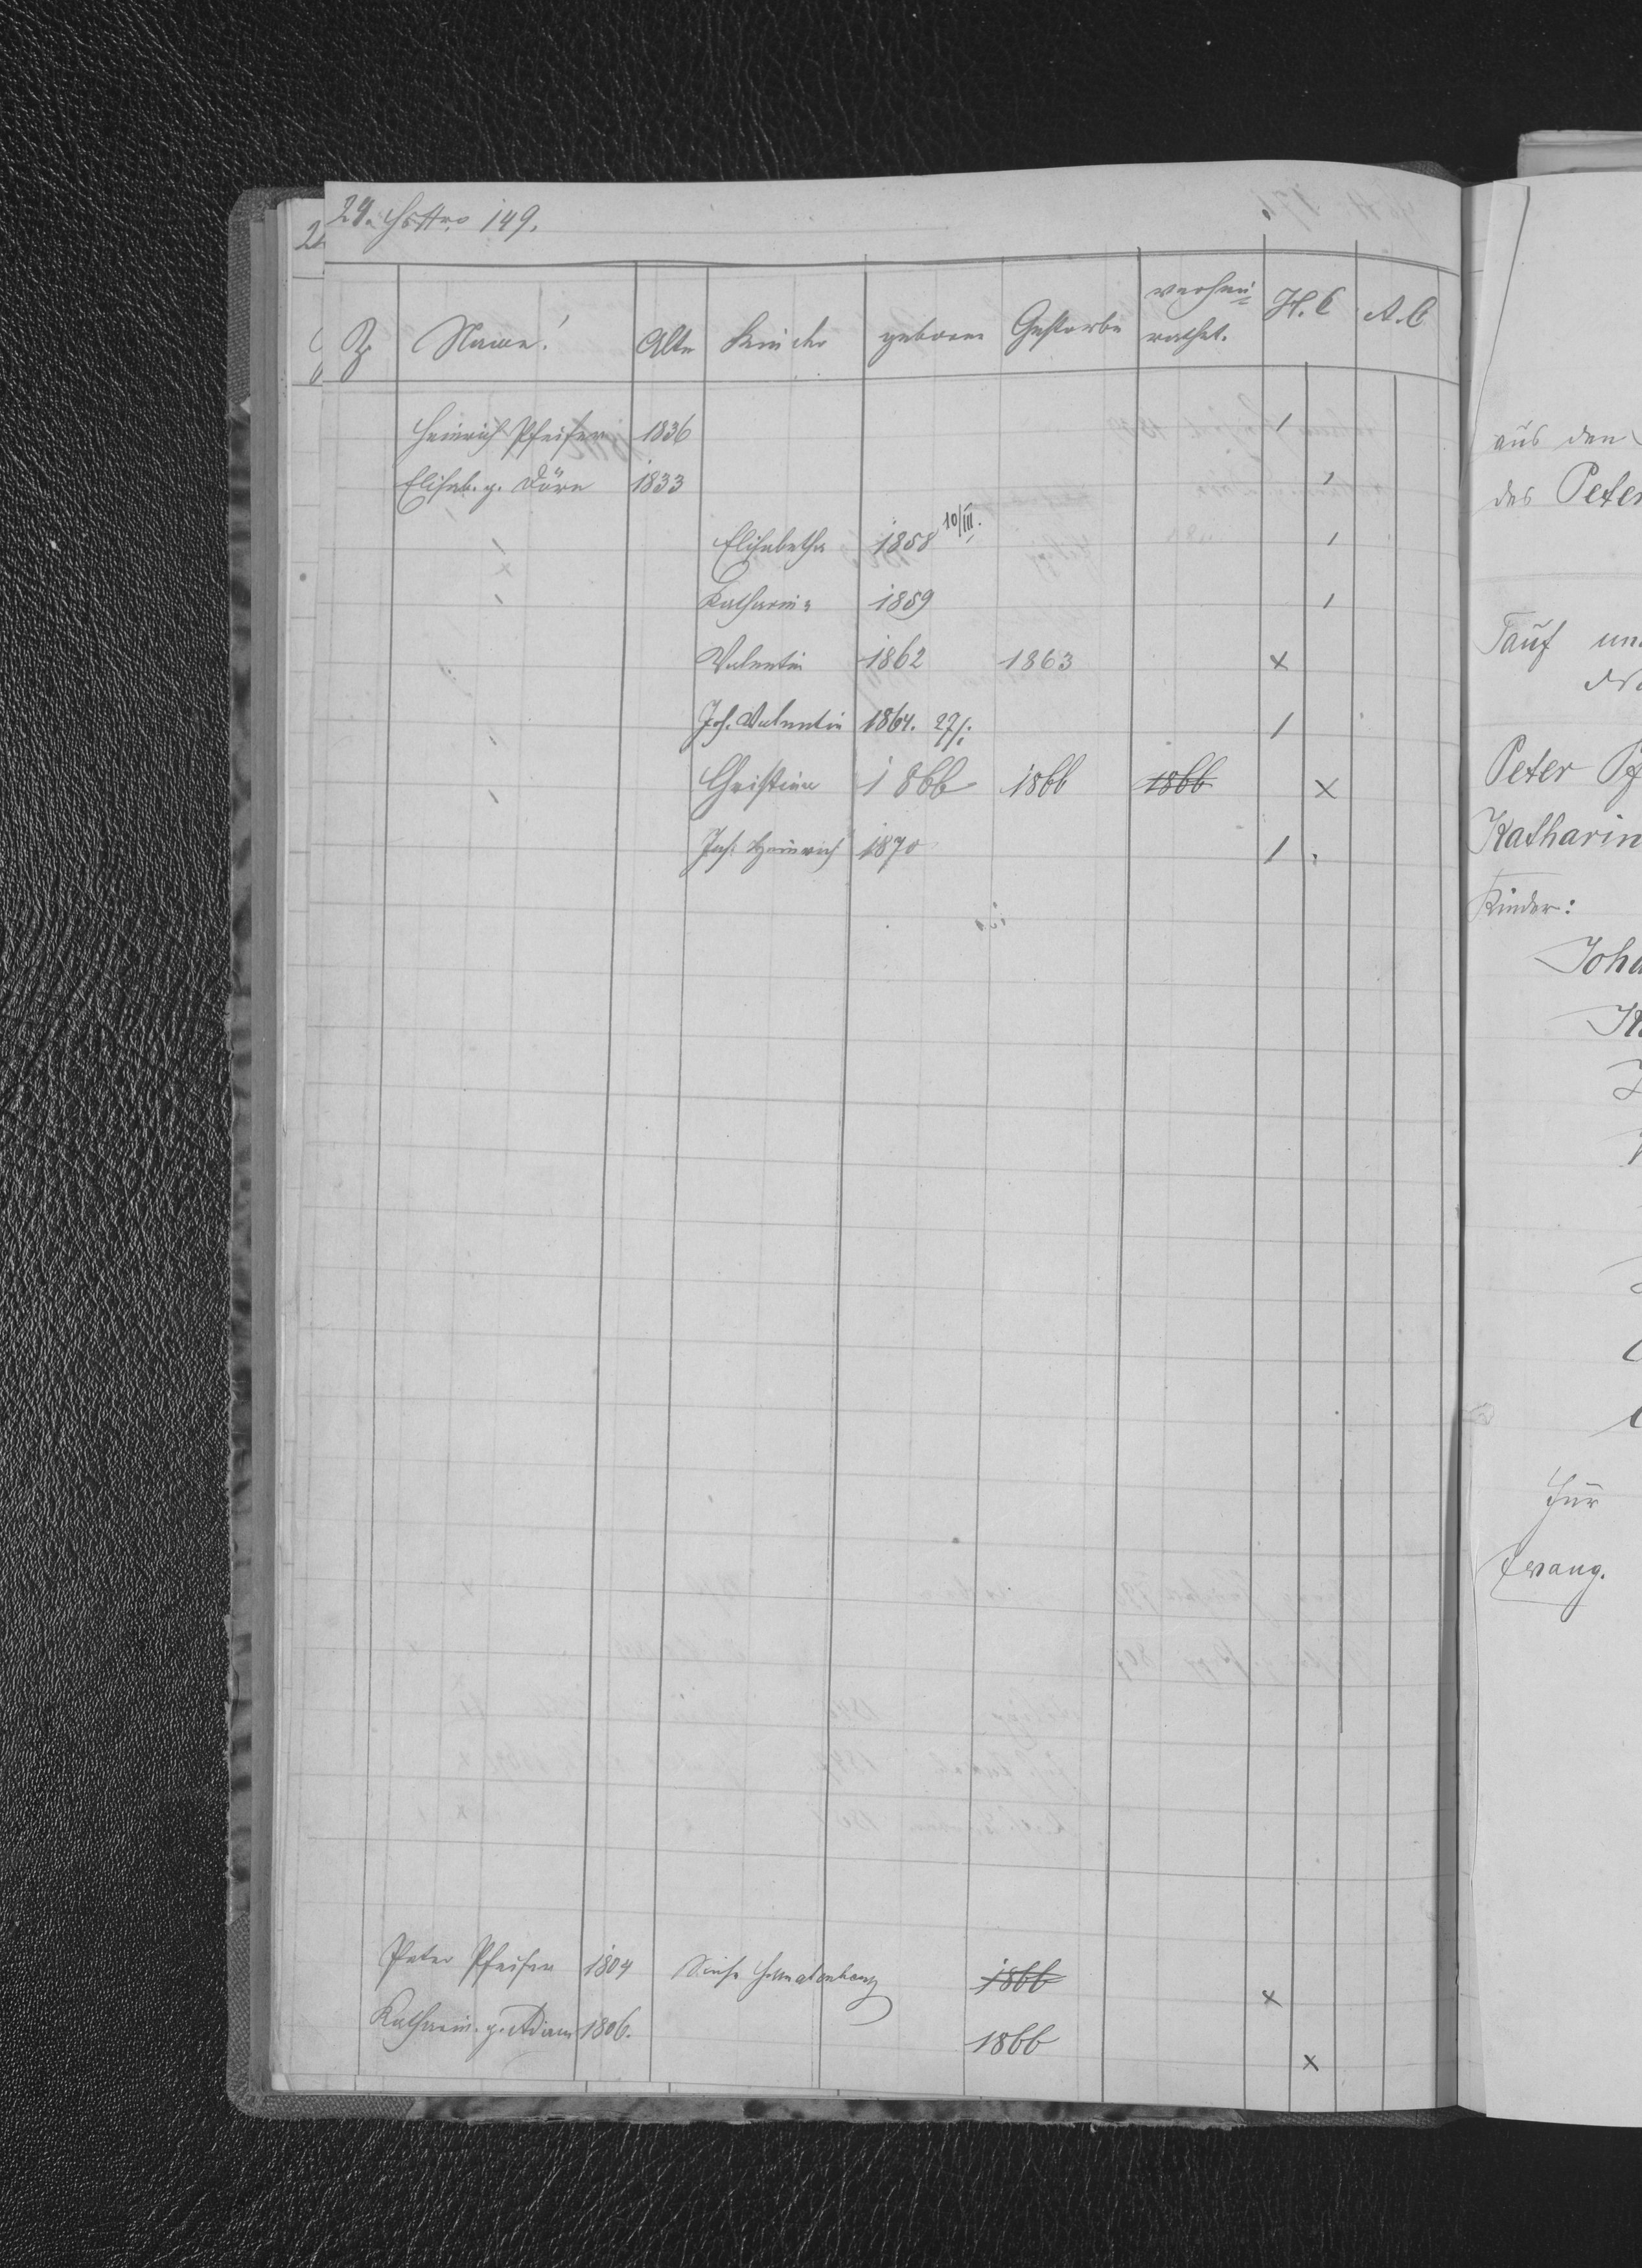 29. HsNro 149.
Z
Name.
Alte
Kinder
geboren
Gestorben
verhei=
rathet.
H. C
A. C
Heinrich Pfeifer 1836 /
Elisab. g. Dörr 1833 /
Elisabetha 1858 10/III. /
Katharina 1859 /
Valentin 1862 1863 x
Joh. Valentin 1864. 27/I. /
Christina 1866 1866 1866 x
Joh. Heinrich 1870 /
Peter Pfeifer 1804 1866 x
Katharin. g. Adam 1806. 1866 x
aus den
des Peter
Tauf
Peter Pf
Katharin
Kinder:
Joha
Für
Evang.